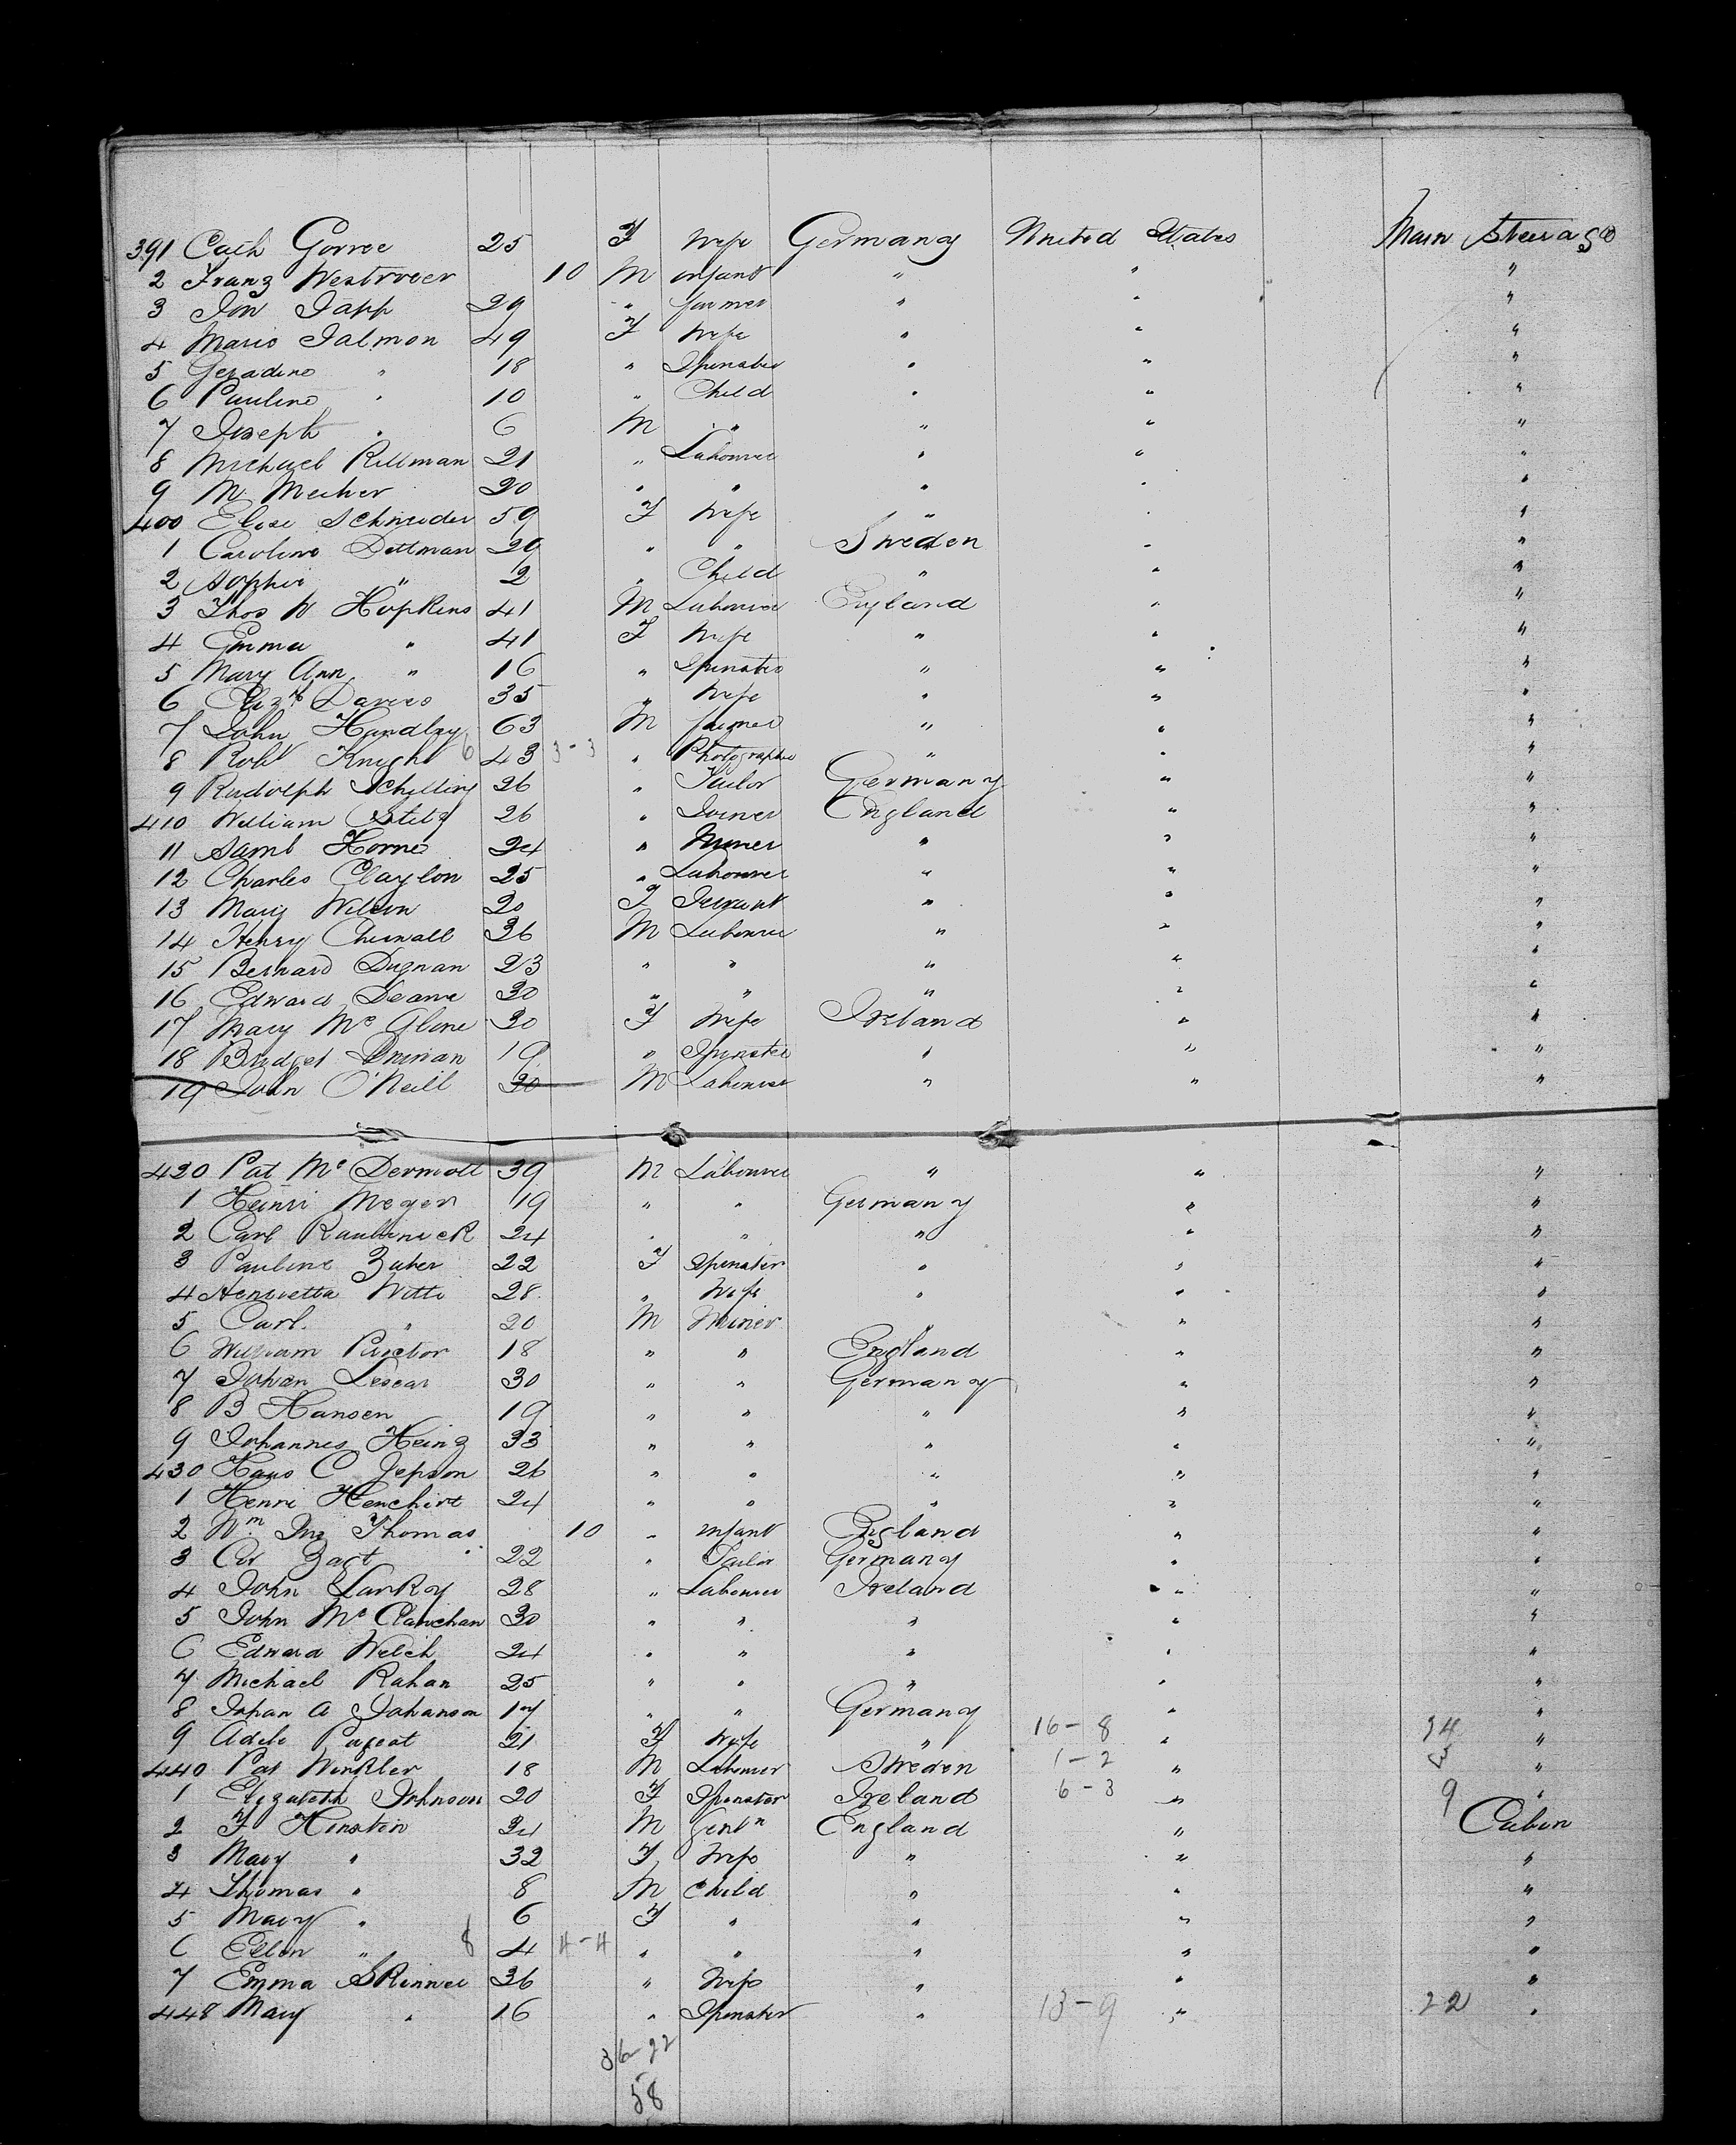 391 Cath Gorree 25 F Wife Germany United States Main Steerage
2 Franz 10 M infant " " "
3 Jon Japp 29 " farmer " " "
4 Marie Salmon 49 F Wife " " "
5 Geradine " 18 " Spinster " " "
6 Pauline " 10 " Child " " "
7 Joseph " 6 M " " " "
8 Michael Rillman 21 " Labourer " " "
9 M Mecher 20 " " " " "
400 Elise Schneider 59 F Wife " " "
1 Caroline Dettman 29 " " Sweden " "
2 Sophie " 2 " Child " " "
3 Thos W Hopkins 41 M Labourer England " "
4 Emma " 41 F Wife " " "
5 Mary Ann " 16 " Spinster " " "
6 Elizth Davies 35 " Wife " " "
7 John Handley 63 M farmer " " "
8 Robt Knight 6 43 3-3 " Photographer " " "
9 Rudolph Schelling 26 " Tailor Germany " "
410 William Stelz 26 " Joiner England " "
11 Saml Horne 24 " Miner " " "
12 Charles Clayton 25 " Labourer " " "
13 Mary Wilson 20 F Servant " " "
14 Henry 36 M Labourer " " "
15 Bernard Dugnan 23 " " " " "
16 Edward Deane 30 " " " " "
17 Mary Mc Alone 30 F Wife Ireland " "
18 Bridget 19 " Spinster " " "
19 John O'Neill 30 M Labourer " " "
420 Pat Mc Dermott 39 M Labourer " " "
1 Heinri Meger 19 " " Germany " "
2 Carl 24 " " " " "
3 Pauline Zuber 22 F Spinster " " "
4 Henrietta Witti 28 " Wife " " "
5 Carl " 20 M Miner " " "
6 William Proctor 18 " " England " "
7 Johan Lescar 30 " " Germany " "
8 B Hansen 19 " " " " "
9 Johannes Heinz 33 " " " " "
430 Hans C Jepson 26 " " " " "
1 Henri Henchirt 24 " " " " "
2 Wm Jno Thomas 10 " infant England " "
3 Car Zart 22 " Tailor Germany " "
4 John Larkey 28 " Labourer Ireland " "
5 John Mc Clanchan 30 " " " " "
6 Edward Welch 24 " " " " "
7 Michael Rahan 25 " " " " "
8 Johan A Johanson 17 " " Germany " "
9 Adele Pageat 21 F Wife " 16-8 " 24 "
440 Pat Winkler 18 M Labourer Sweden 1-2 " 3 "
1 Elizabeth Johnson 20 F Spinster Ireland 6-3 " 9 "
2 F Hinstin 34 M Gentn England " Cabin
3 Mary " 32 F Wife " " "
4 Thomas " 8 M Child " " "
5 Mary " 6 F " " " "
6 Ellen " 8 4 4-4 " " " " "
7 Emma Skinner 36 " Wife " " "
448 Mary " 16 " Spinster " 13-9 " 22 "
36-22
58